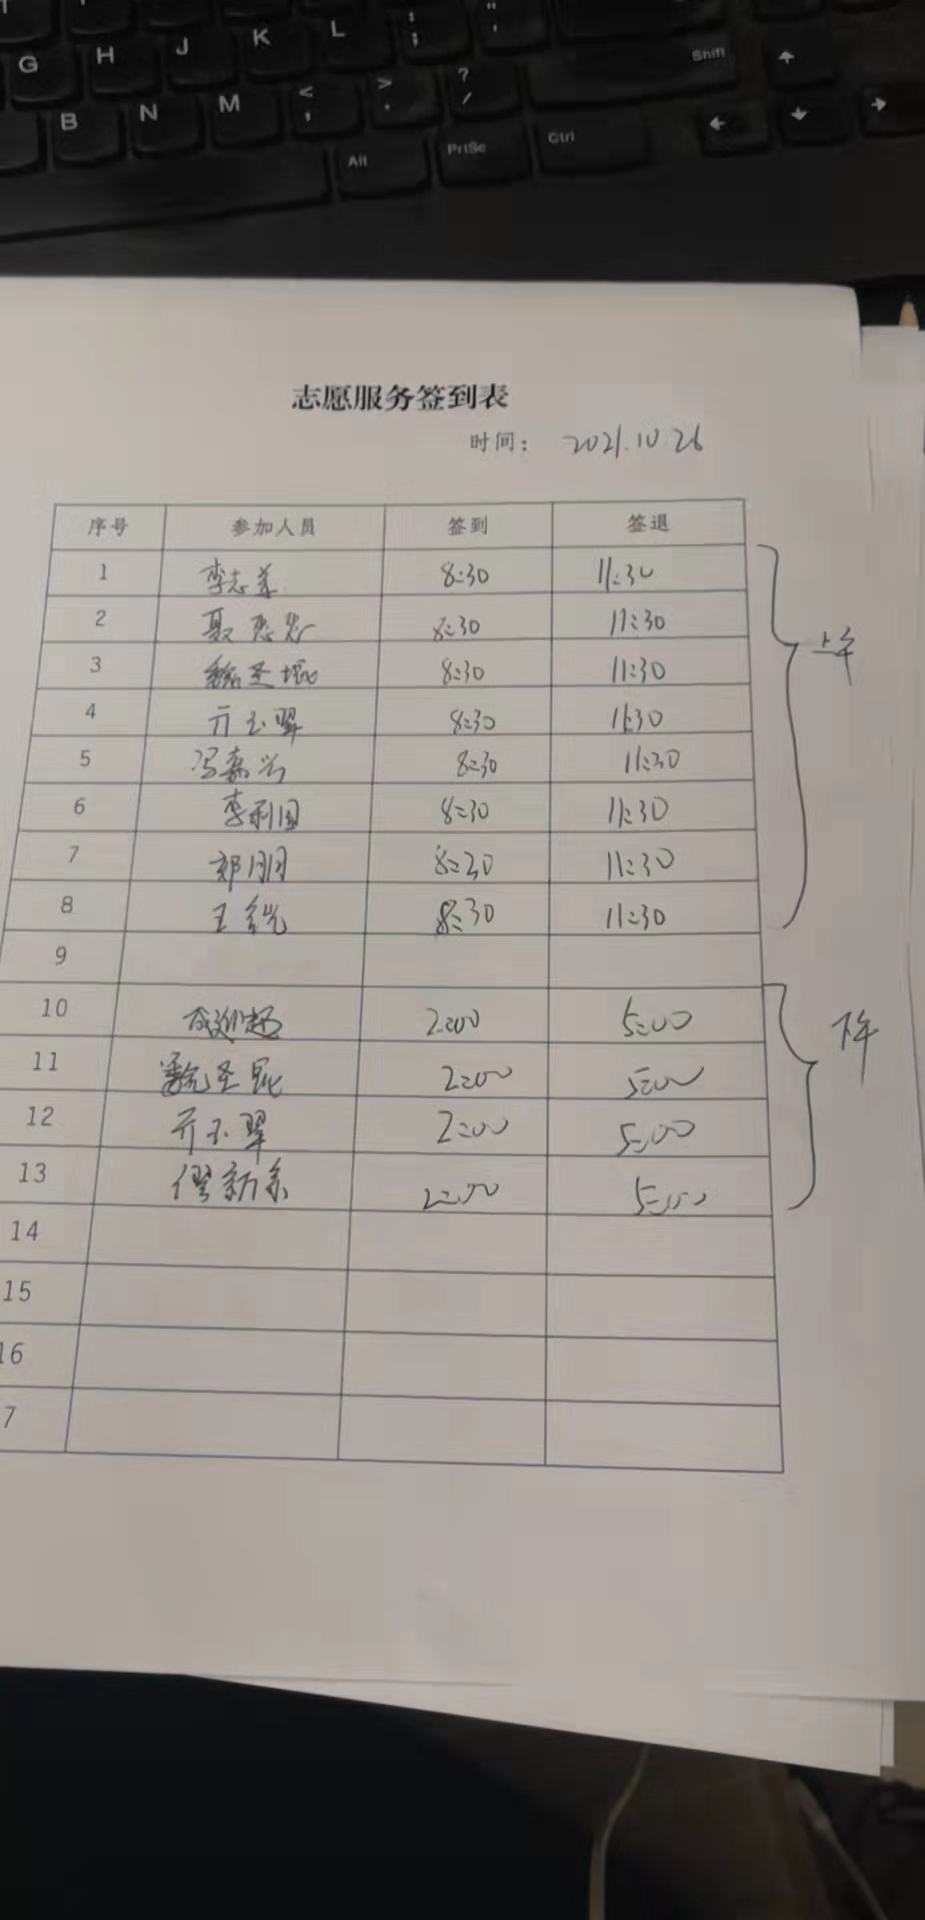 G H J K L : ; " '
B N M < , > . ? / Shift
Alt PrtSc Ctrl
志愿服务签到表
时间： 2021.10.26
序号 参加人员 签到 签退
1 李志美 8:30 11:30
2 聂 8:30 11:30
3 魏圣琨 8:30 11:30
4 亓玉翠 8:30 11:30
5 冯嘉兴 8:30 11:30
6 李利国 8:30 11:30
7 郑朋 8:30 11:30
8 王 8:30 11:30
上午
9
10 成迎超 2:00 5:00
11 魏圣琨 2:00 5:00
12 亓玉翠 2:00 5:00
13 新 2:00 5:00
下午
14
15
16
7